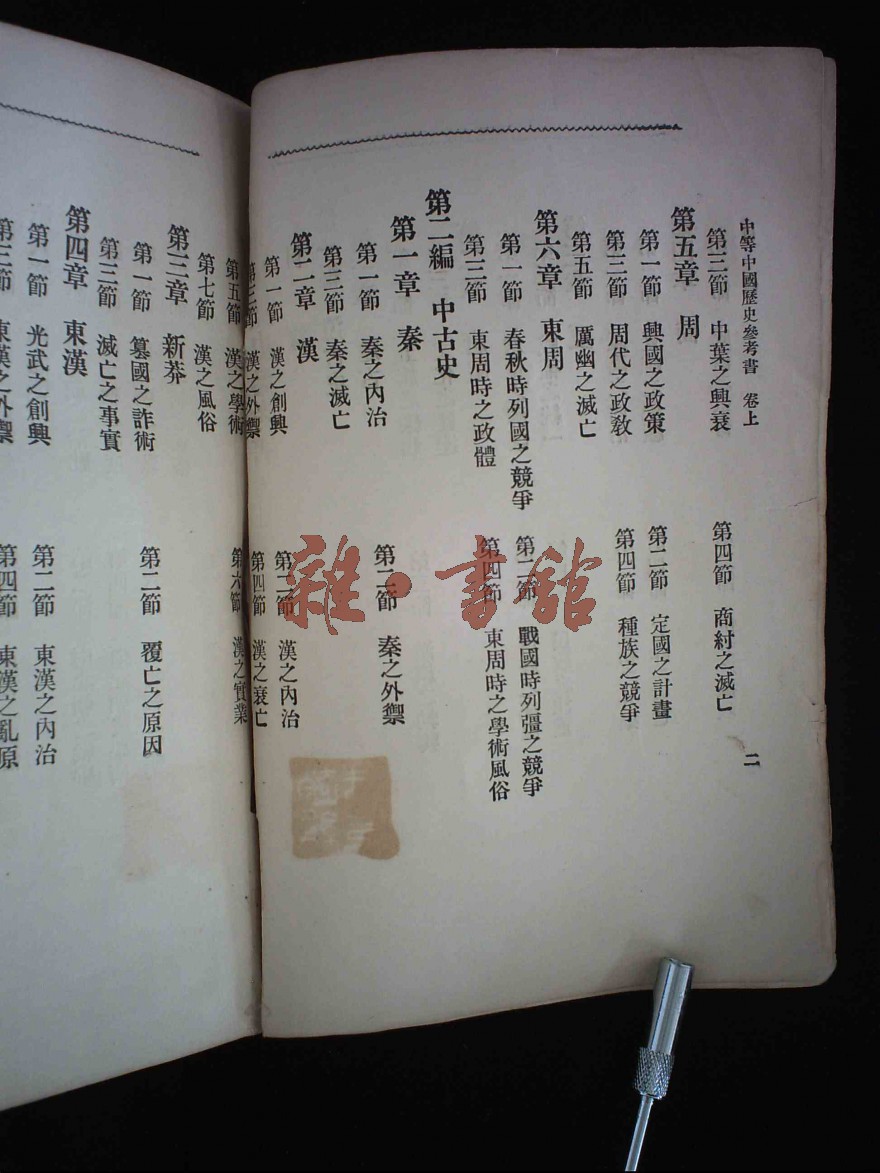 中等中國歷史參考書 卷上
二
第三節 中葉之興衰 第四節 商紂之滅亡
第五章 周
第一節 興國之政策 第二節 定國之計畫
第三節 周代之政教 第四節 種族之競爭
第五節 厲幽之滅亡
第六章 東周
第一節 春秋時列國之競爭 第二節 戰國時列彊之競爭
第三節 東周時之政體 第四節 東周時之學術風俗
第二編 中古史
第一章 秦
第一節 秦之內治 第二節 秦之外禦
第三節 秦之滅亡
第二章 漢
第一節 漢之創興 第二節 漢之內治
第三節 漢之外禦 第四節 漢之衰亡
第五節 漢之學術 第六節 漢之實業
第七節 漢之風俗
第三章 新莽
第一節 篡國之詐術 第二節 覆亡之原因
第三節 滅亡之事實
第四章 東漢
第一節 光武之創興 第二節 東漢之內治
第三節 東漢之外禦 第四節 東漢之亂原
雜·書館